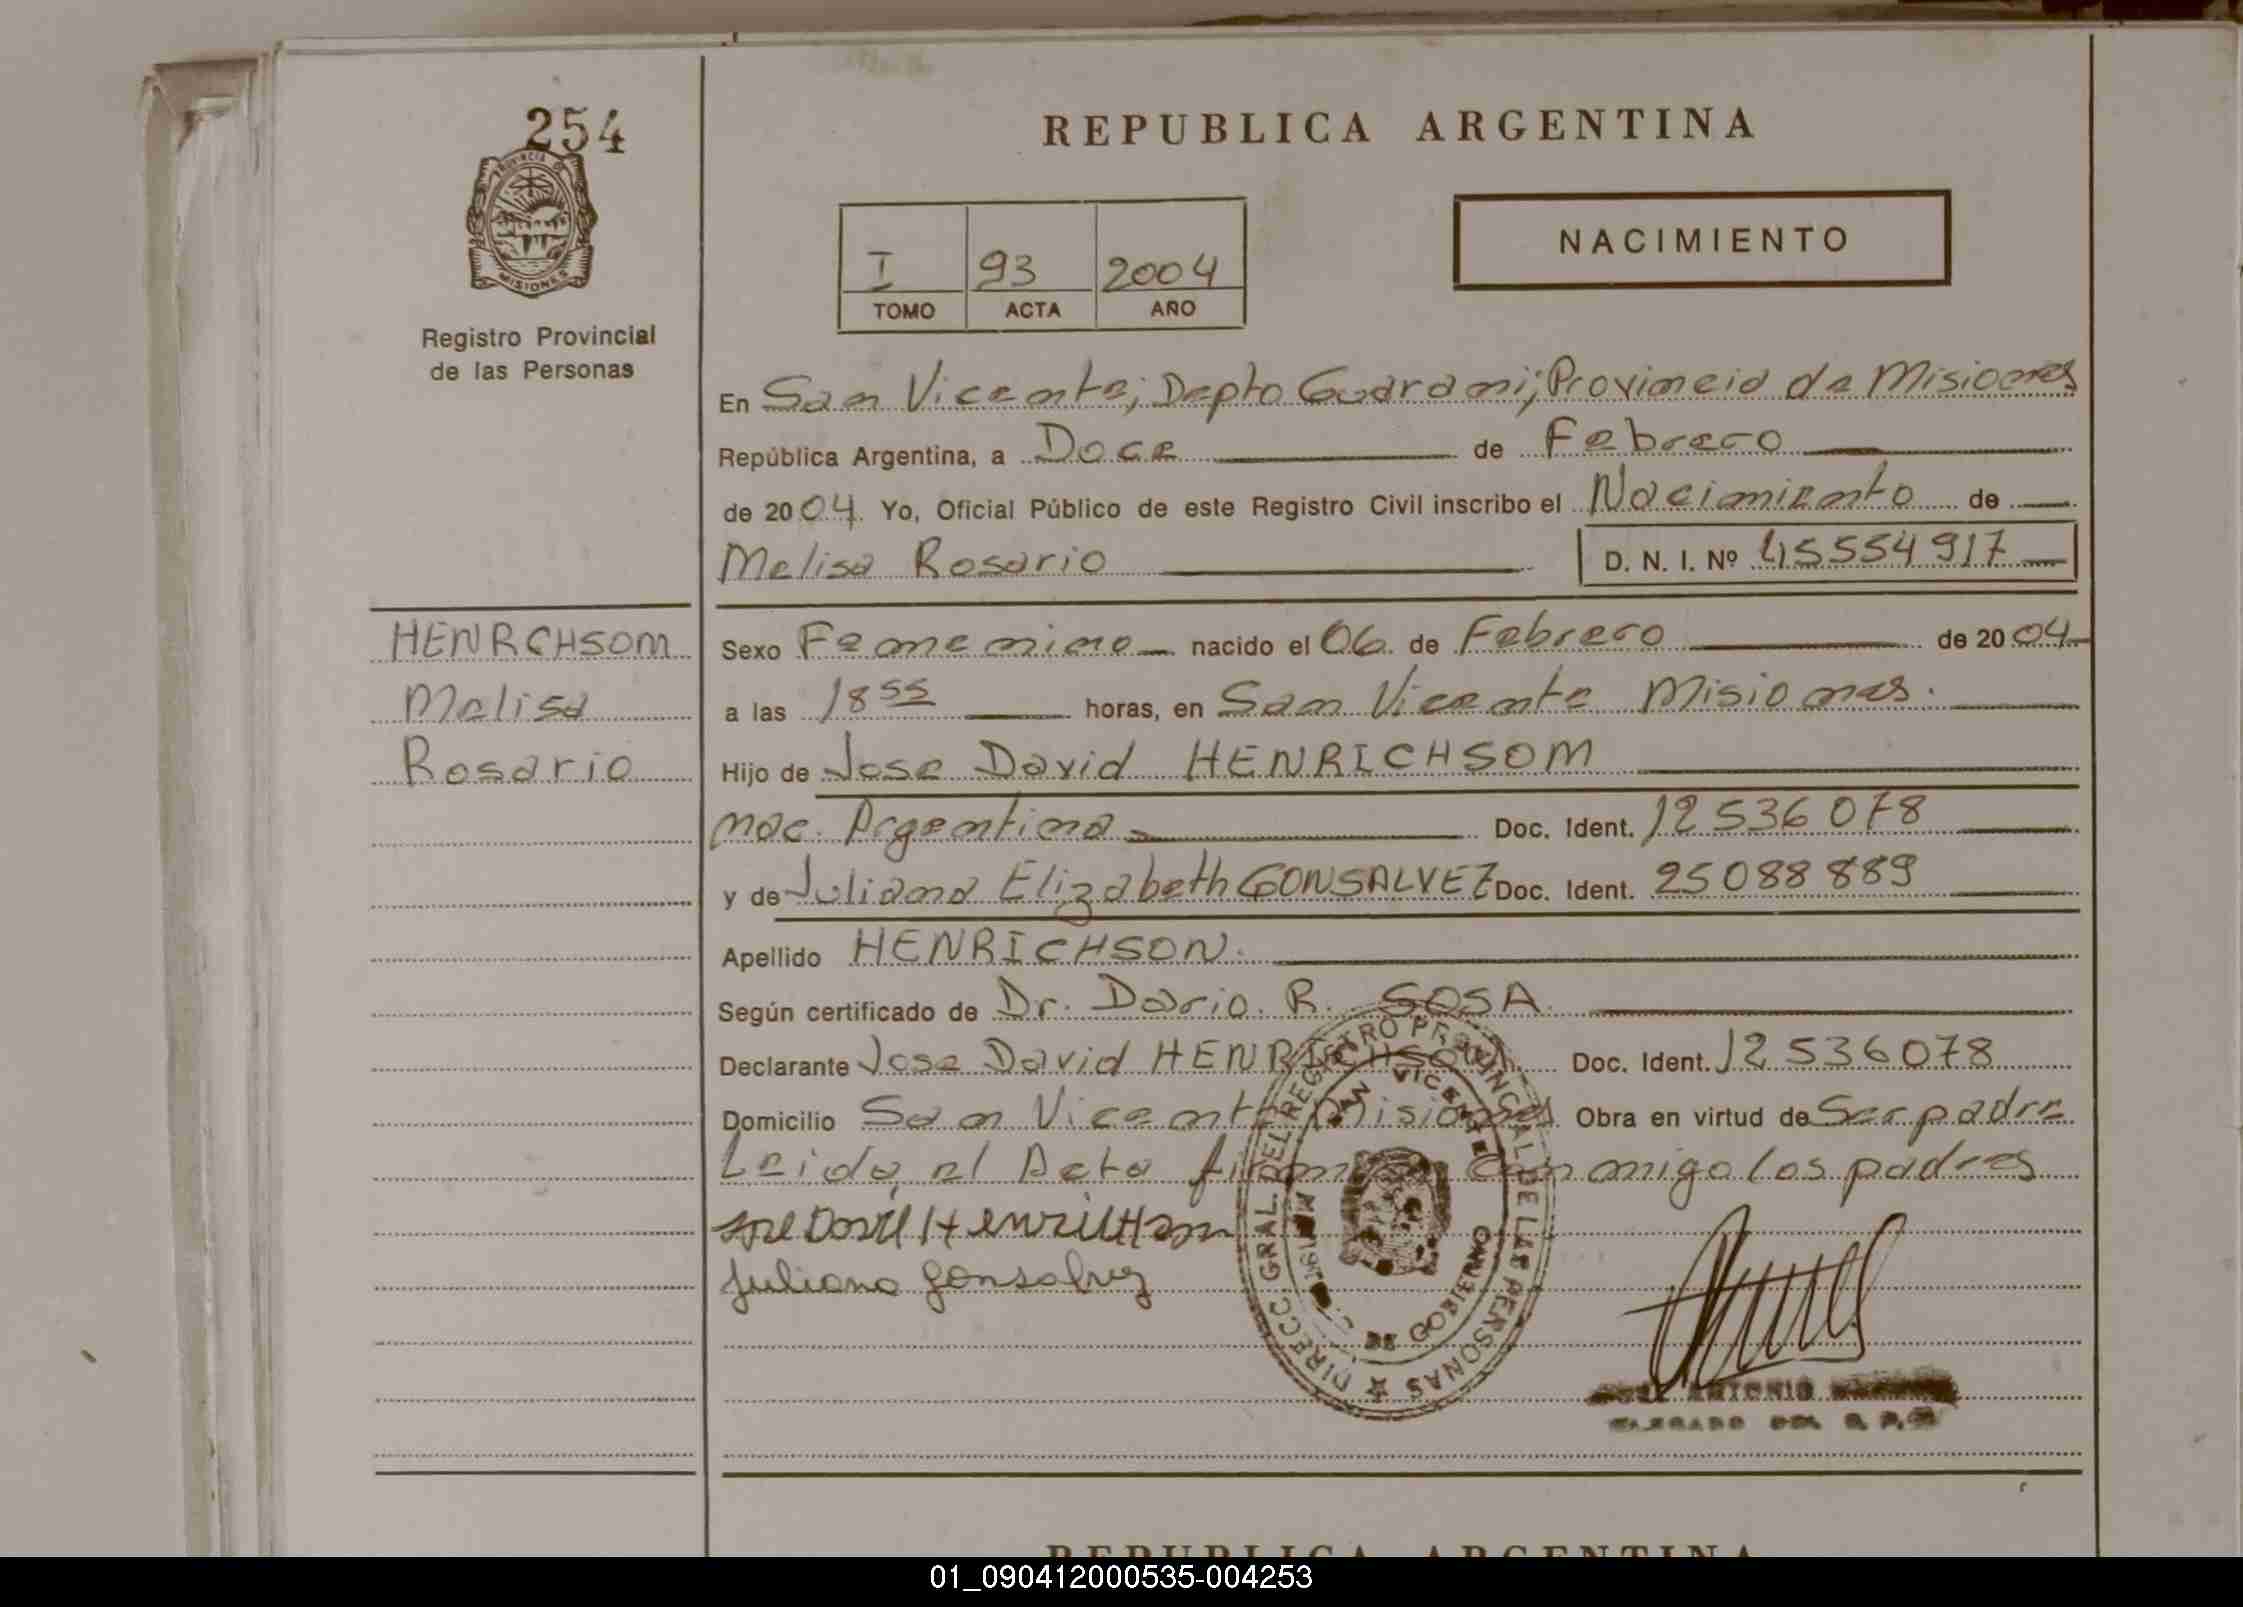 254
PROVINCIA DE
MISIONES
Registro Provincial
de las Personas
REPUBLICA ARGENTINA
I 93 2004
TOMO ACTA AÑO
NACIMIENTO
En San Vicente; Depto Guarani; Provincia de Misiones
República Argentina, a Doce de Febrero
de 2004. Yo, Oficial Público de este Registro Civil inscribo el Nacimiento de
Melisa Rosario D. N. I. Nº 45554917
HENRCHSOM
Melisa
Rosario
Sexo Femenino nacido el 06 de Febrero de 2004
a las 18 55 horas, en San Vicente Misiones.
Hijo de Jose David HENRICHSOM
nac. Argentina Doc. Ident. 12536078
y de Juliana Elizabeth GONSALVEZ Doc. Ident. 25088889
Apellido HENRICHSON.
Según certificado de Dr. Dario. R. SOSA.
Declarante Jose David HENRICHSON Doc. Ident. 12536078
Domicilio San Vicente Misiones Obra en virtud de Ser padre
Leida el Acta firman conmigo los padres
Jose David Henrichson
Juliana Gonsalvez
DIRECC. GRAL. DEL REGISTRO PROVINCIAL DE LAS PERSONAS
SAN VICENTE
DE GOBIERNO
ANTONIO
REPUBLICA ARGENTINA
01_090412000535-004253